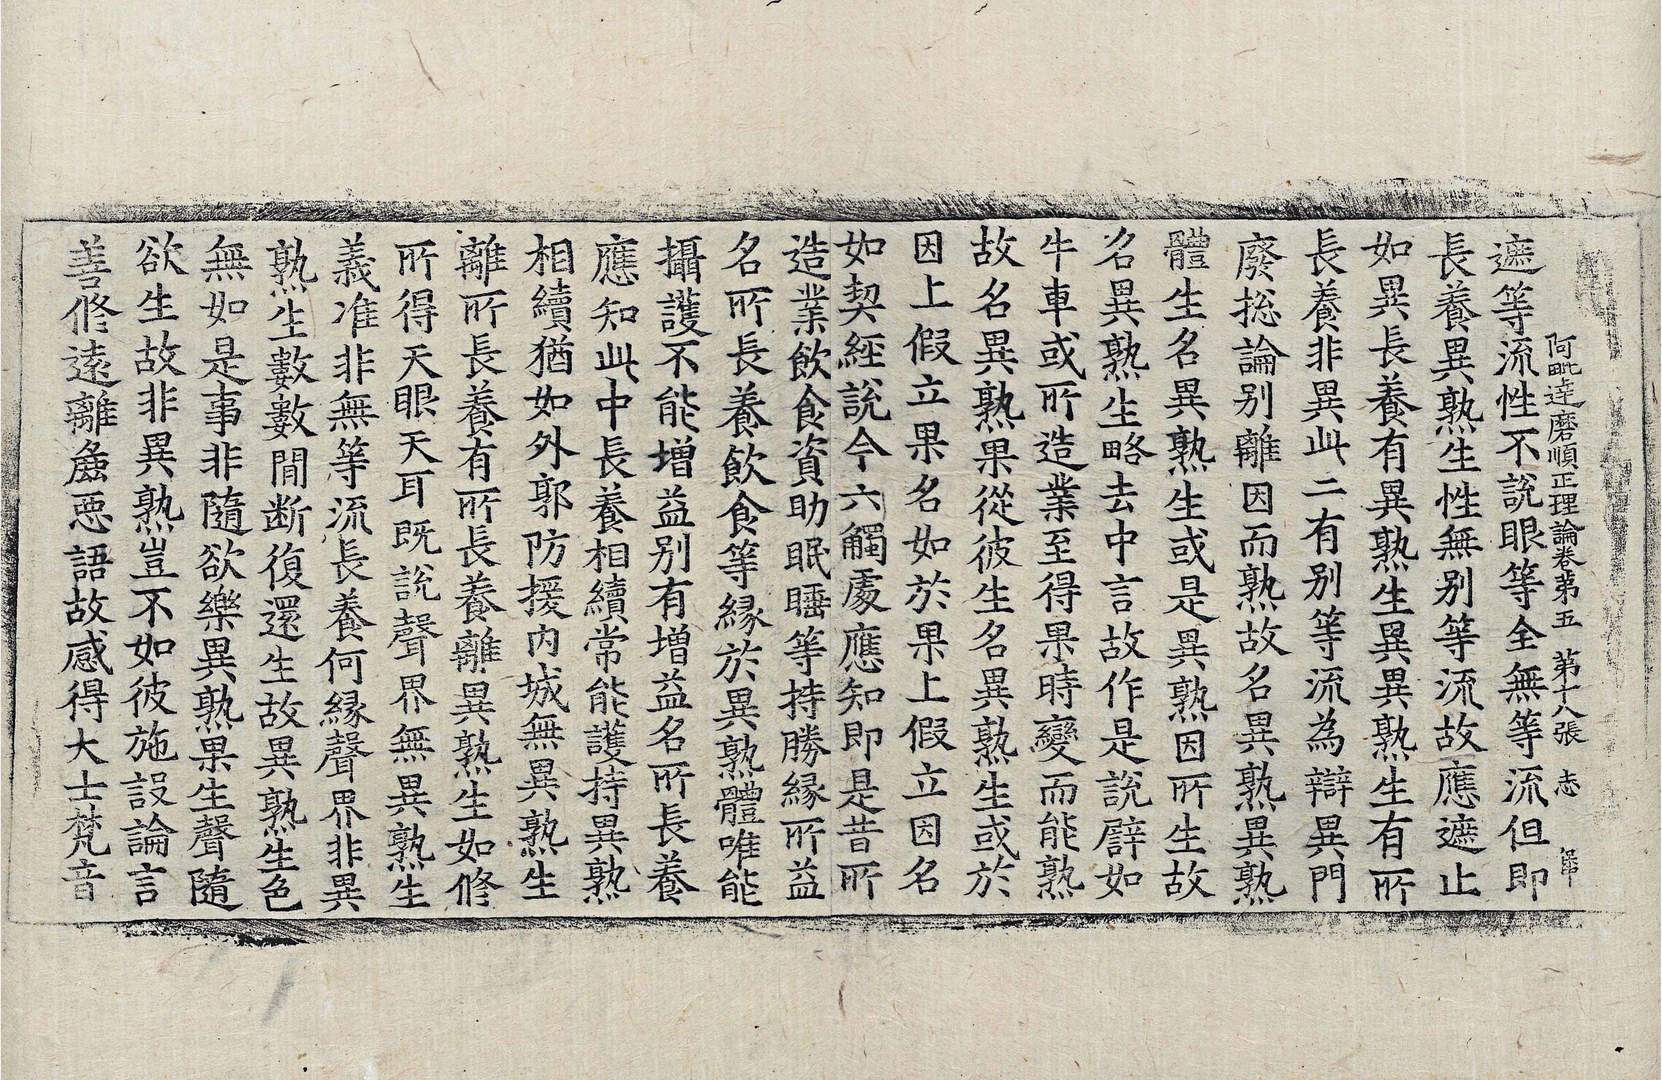 阿毗達磨順正理論卷第五 第十八張 志
遮等流性不說眼等全無等流但即
長養異熟生性無别等流故應遮止
如異長養有異熟生異異熟生有所
長養非異此二有别等流為辯異門
廢捴論别離因而熟故名異熟異熟
體生名異熟生或是異熟因所生故
名異熟生略去中言故作是說譬如
牛車或所造業至得果時變而能熟
故名異熟果從彼生名異熟生或於
因上假立果名如於果上假立因名
如契經說今六觸處應知即是昔所
造業飲食資助眠睡等持勝縁所益
名所長養飲食等縁於異熟體唯能
攝護不能增益别有增益名所長養
應知此中長養相續常能護持異熟
相續猶如外郭防援内城無異熟生
離所長養有所長養離異熟生如修
所得天眼天耳既說聲界無異熟生
義准非無等流長養何縁聲界非異
熟生數數間斷復還生故異熟生色
無如是事非隨欲樂異熟果生聲隨
欲生故非異熟豈不如彼施設論言
善修遠離麁惡語故感得大士梵音